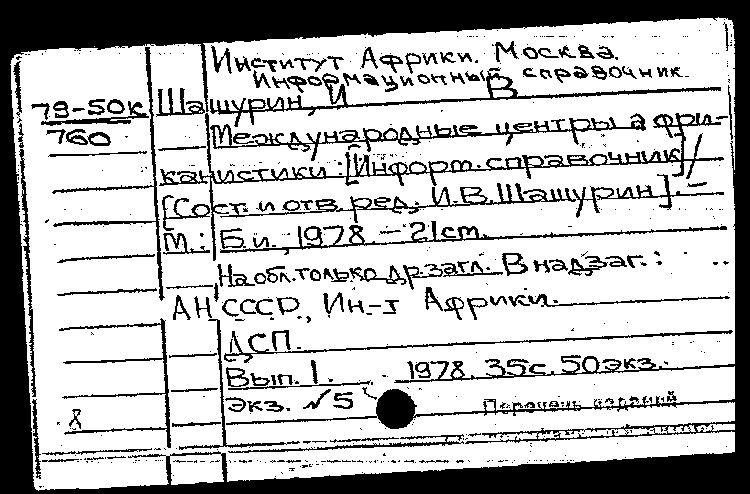 Институт Африки. Москва.
Информационный справочник.
79-50к Шащурин, И В
760 Международные центры афри-
канистики: [Информ. справочник] /
[Сост. и отв. ред. И.В. Шащурин]. —
М.: Б.и., 1978. — 21 cm.
На обл. только др. загл. В надзаг.: ..
АН СССР, Ин-т Африки.
ДСП.
Вып. 1. 1978. 35с. 50экз.
экз. №5
Перечень изданий
8